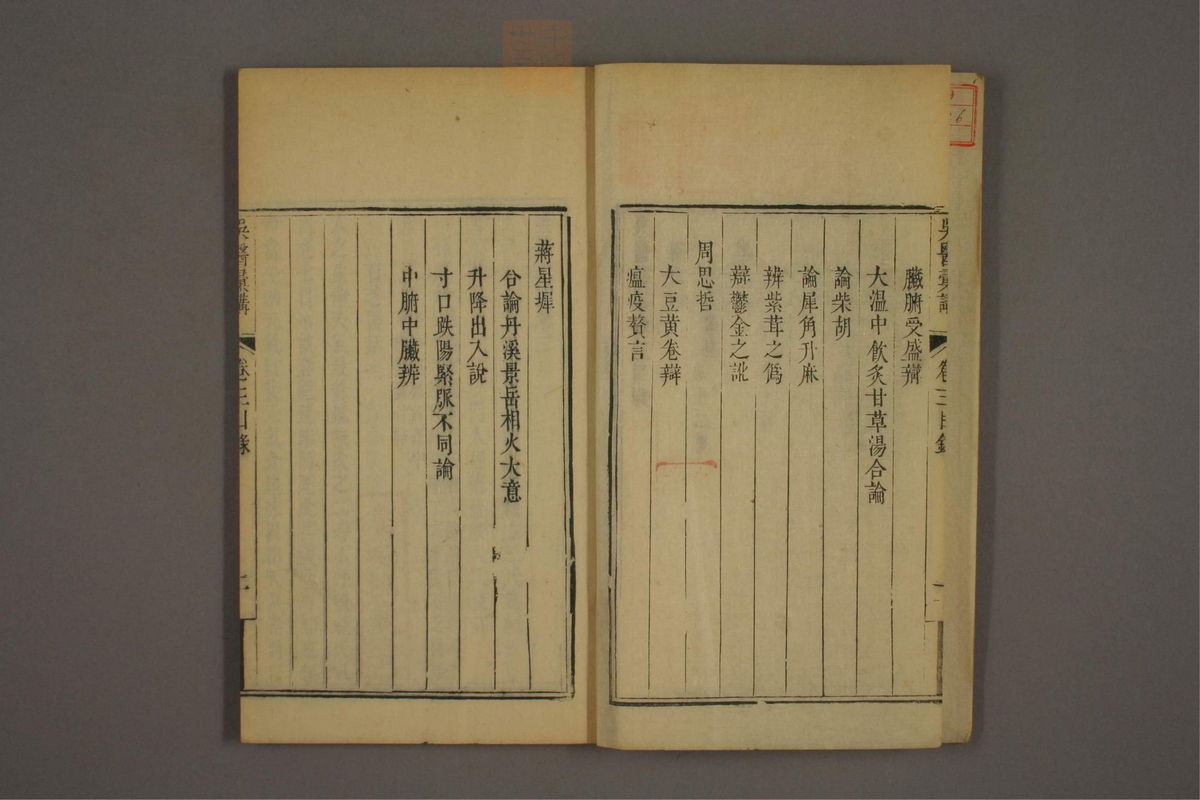 吳醫彙講 卷三目錄
臟腑受盛辯
大温中飲炙甘草湯合論
論柴胡
論犀角升麻
辨紫茸之僞
辯鬱金之訛
周思哲
大豆黃卷辯
瘟疫贅言
蔣星墀
合論丹溪景岳相火大意
升降出入說
寸口趺陽緊脈不同論
中腑中臟辨
吳醫彙講 卷三目錄 二